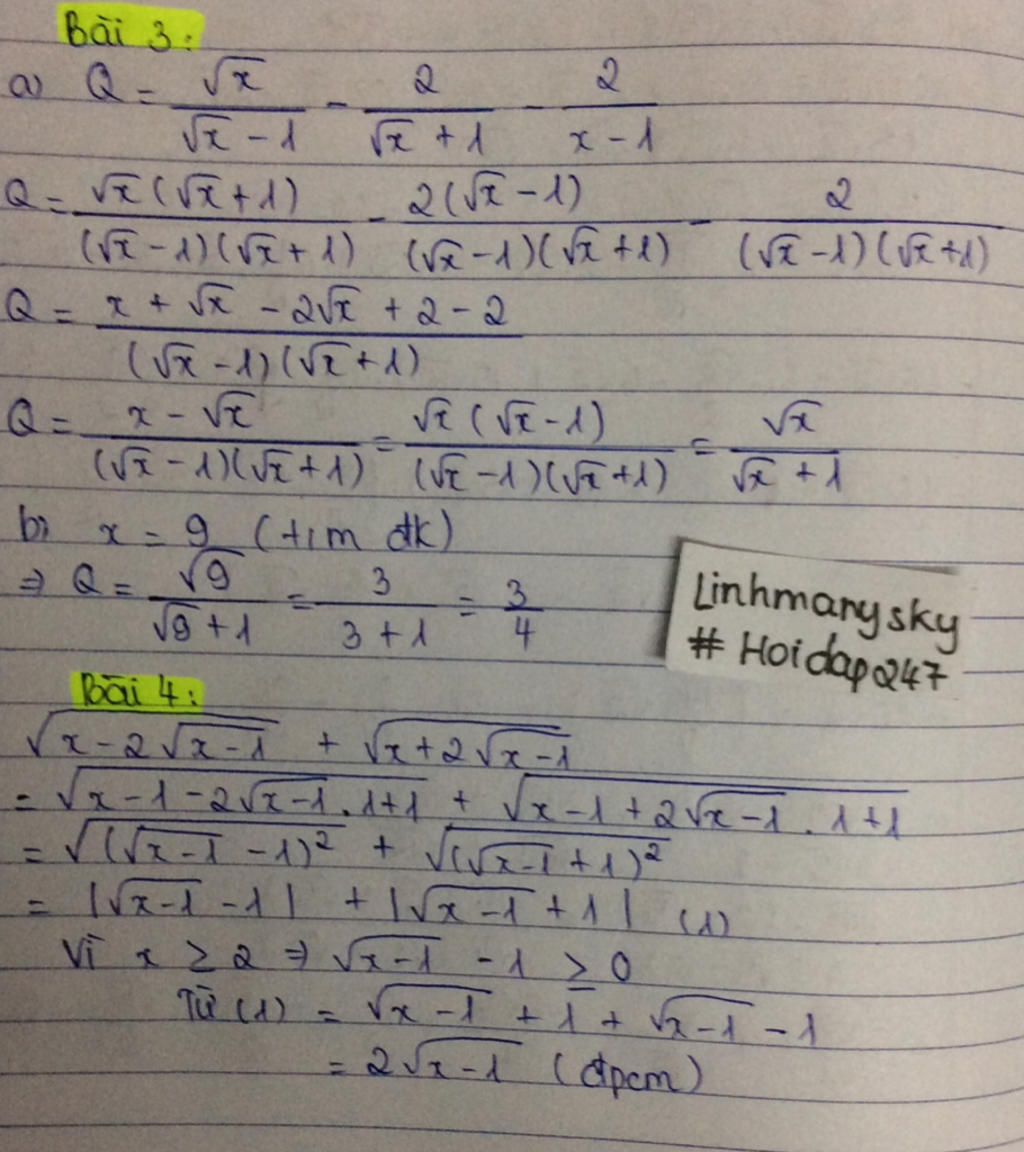 Bài 3:
a) Q = √x/(√x - 1) - 2/(√x + 1) - 2/(x - 1)
Q = √x(√x + 1)/((√x - 1)(√x + 1)) - 2(√x - 1)/((√x - 1)(√x + 1)) - 2/((√x - 1)(√x + 1))
Q = (x + √x - 2√x + 2 - 2)/((√x - 1)(√x + 1))
Q = (x - √x)/((√x - 1)(√x + 1)) = √x(√x - 1)/((√x - 1)(√x + 1)) = √x/(√x + 1)
b) x = 9 (t/m đk)
⇒ Q = √9/(√9 + 1) = 3/(3 + 1) = 3/4
Linhmanysky
# Hoidap247
Bài 4:
√(x - 2√(x - 1)) + √(x + 2√(x - 1))
= √(x - 1 - 2√(x - 1) . 1 + 1) + √(x - 1 + 2√(x - 1) . 1 + 1)
= √((√(x - 1) - 1)²) + √((√(x - 1) + 1)²)
= |√(x - 1) - 1| + |√(x - 1) + 1| (1)
Vì x ≥ 2 ⇒ √(x - 1) - 1 ≥ 0
Từ (1) = √(x - 1) + 1 + √(x - 1) - 1
= 2√(x - 1) (đpcm)